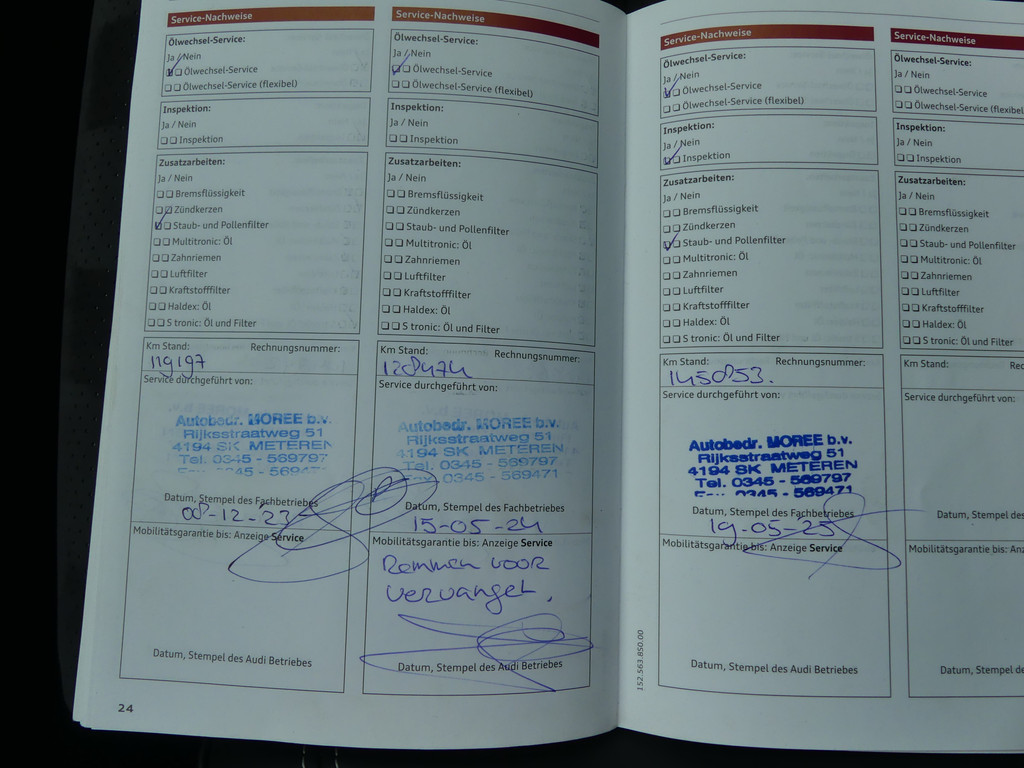 Service-Nachweise
Ölwechsel-Service:
Ja / Nein
Ölwechsel-Service
Ölwechsel-Service (flexibel)
Inspektion:
Ja / Nein
Inspektion
Zusatzarbeiten:
Ja / Nein
Bremsflüssigkeit
Zündkerzen
Staub- und Pollenfilter
Multitronic: Öl
Zahnriemen
Luftfilter
Kraftstofffilter
Haldex: Öl
S tronic: Öl und Filter
Km Stand: Rechnungsnummer:
119197
Service durchgeführt von:
Autobedr. MOREE b.v.
Rijksstraatweg 51
4194 SK METEREN
Tel. 0345 - 569797
Datum, Stempel des Fachbetriebes
08-12-23
Mobilitätsgarantie bis: Anzeige Service
Datum, Stempel des Audi Betriebes
24
Service-Nachweise
Ölwechsel-Service:
Ja / Nein
Ölwechsel-Service
Ölwechsel-Service (flexibel)
Inspektion:
Ja / Nein
Inspektion
Zusatzarbeiten:
Ja / Nein
Bremsflüssigkeit
Zündkerzen
Staub- und Pollenfilter
Multitronic: Öl
Zahnriemen
Luftfilter
Kraftstofffilter
Haldex: Öl
S tronic: Öl und Filter
Km Stand: Rechnungsnummer:
128474
Service durchgeführt von:
Autobedr. MOREE b.v.
Rijksstraatweg 51
4194 SK METEREN
Tel. 0345 - 569797
Fax. 0345 - 569471
Datum, Stempel des Fachbetriebes
15-05-24
Mobilitätsgarantie bis: Anzeige Service
Remmen voor
vervangen.
Datum, Stempel des Audi Betriebes
Service-Nachweise
Ölwechsel-Service:
Ja / Nein
Ölwechsel-Service
Ölwechsel-Service (flexibel)
Inspektion:
Ja / Nein
Inspektion
Zusatzarbeiten:
Ja / Nein
Bremsflüssigkeit
Zündkerzen
Staub- und Pollenfilter
Multitronic: Öl
Zahnriemen
Luftfilter
Kraftstofffilter
Haldex: Öl
S tronic: Öl und Filter
Km Stand: Rechnungsnummer:
145053.
Service durchgeführt von:
Autobedr. MOREE b.v.
Rijksstraatweg 51
4194 SK METEREN
Tel. 0345 - 569797
Fax. 0345 - 569471
Datum, Stempel des Fachbetriebes
19-05-25
Mobilitätsgarantie bis: Anzeige Service
Datum, Stempel des Audi Betriebes
152.563.850.00
Service-Nachweise
Ölwechsel-Service:
Ja / Nein
Ölwechsel-Service
Ölwechsel-Service (flexibel
Inspektion:
Ja / Nein
Inspektion
Zusatzarbeiten:
Ja / Nein
Bremsflüssigkeit
Zündkerzen
Staub- und Pollenfilter
Multitronic: Öl
Zahnriemen
Luftfilter
Kraftstofffilter
Haldex: Öl
S tronic: Öl und Filter
Km Stand: Rec
Service durchgeführt von:
Datum, Stempel des
Mobilitätsgarantie bis: An
Datum, Stempel de